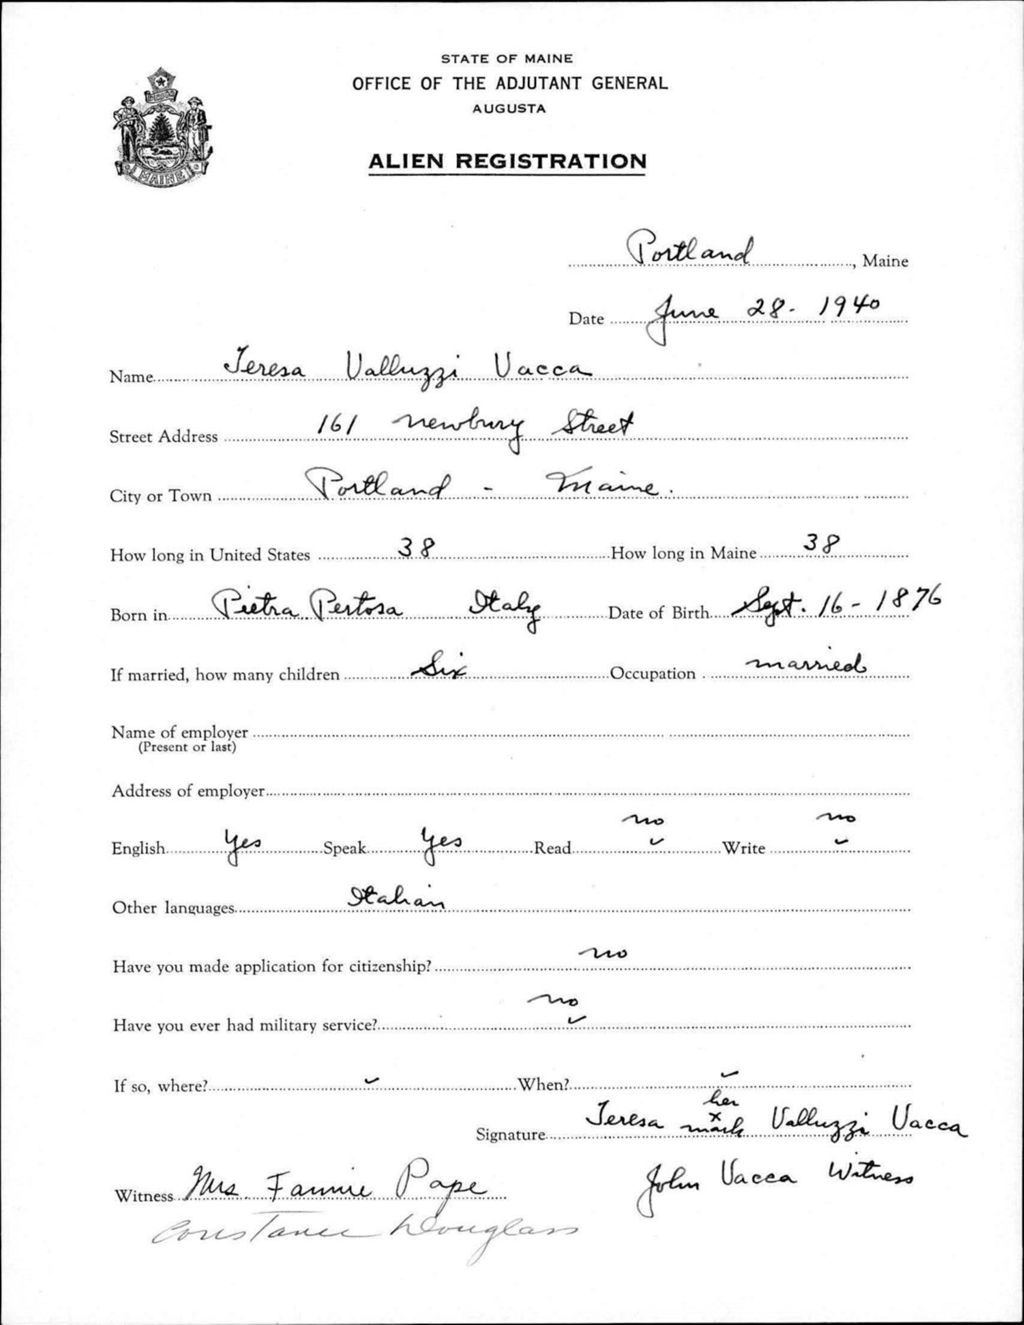 STATE OF MAINE
OFFICE OF THE ADJUTANT GENERAL
AUGUSTA
MAINE
ALIEN REGISTRATION
Portland, Maine
Date June 28 - 1940
Name Teresa Valluzzi Vacca
Street Address 161 Newbury Street
City or Town Portland - Maine.
How long in United States 38 How long in Maine 38
Born in Pietra Pertosa Italy Date of Birth Sept. 16 - 1876
If married, how many children Six Occupation married
Name of employer
(Present or last)
Address of employer
no no
English Yes Speak Yes Read Write
Other languages Italian
Have you made application for citizenship? no
Have you ever had military service? no
If so, where? When?
her
Signature Teresa x mark Valluzzi Vacca
Witness Mrs Fannie Pape John Vacca Witness
Constance Douglass